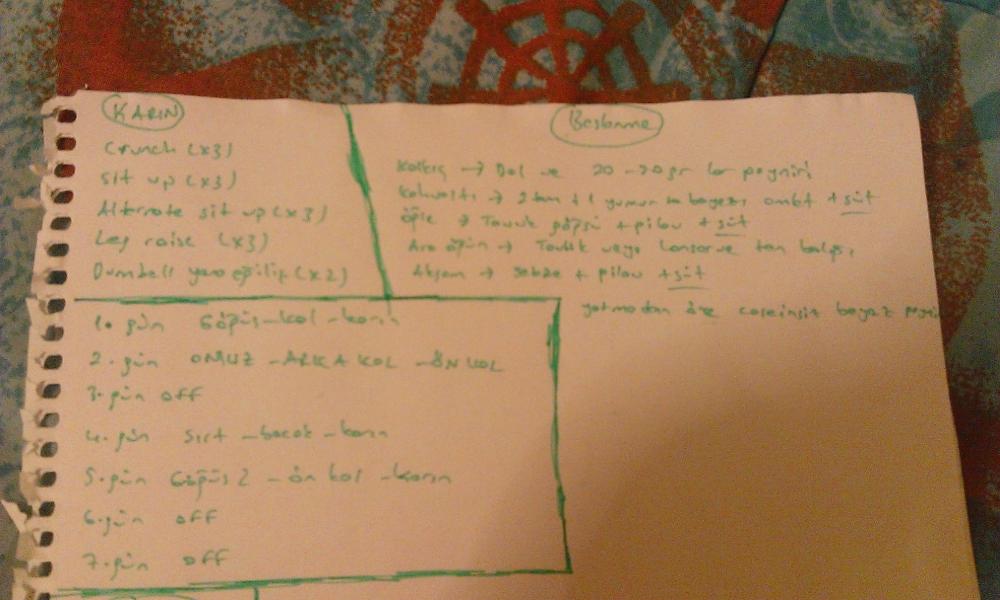 KARIN
Crunch (x3)
sit up (x3)
Alternate sit up (x3)
Leg raise (x3)
Dumbell yana eğiliş (x2)
Beslenme
Kalkış → Bal ve 20-30gr lor peyniri
Kahvaltı → 2 tam + 1 yumurta beyazı omlet + süt
öğle → Tavuk göğsü + pilav + süt
Ara öğün → Tavuk veya konserve ton balığı
Akşam → Sebze + pilav + süt
yatmadan önce beyaz
1. gün Göğüs-kol-karın
2. gün OMUZ - ARKA KOL - ÖN KOL
3. gün off
4. gün Sırt - bacak - karın
5. gün Göğüs 2 - ön kol - karın
6. gün off
7. gün off